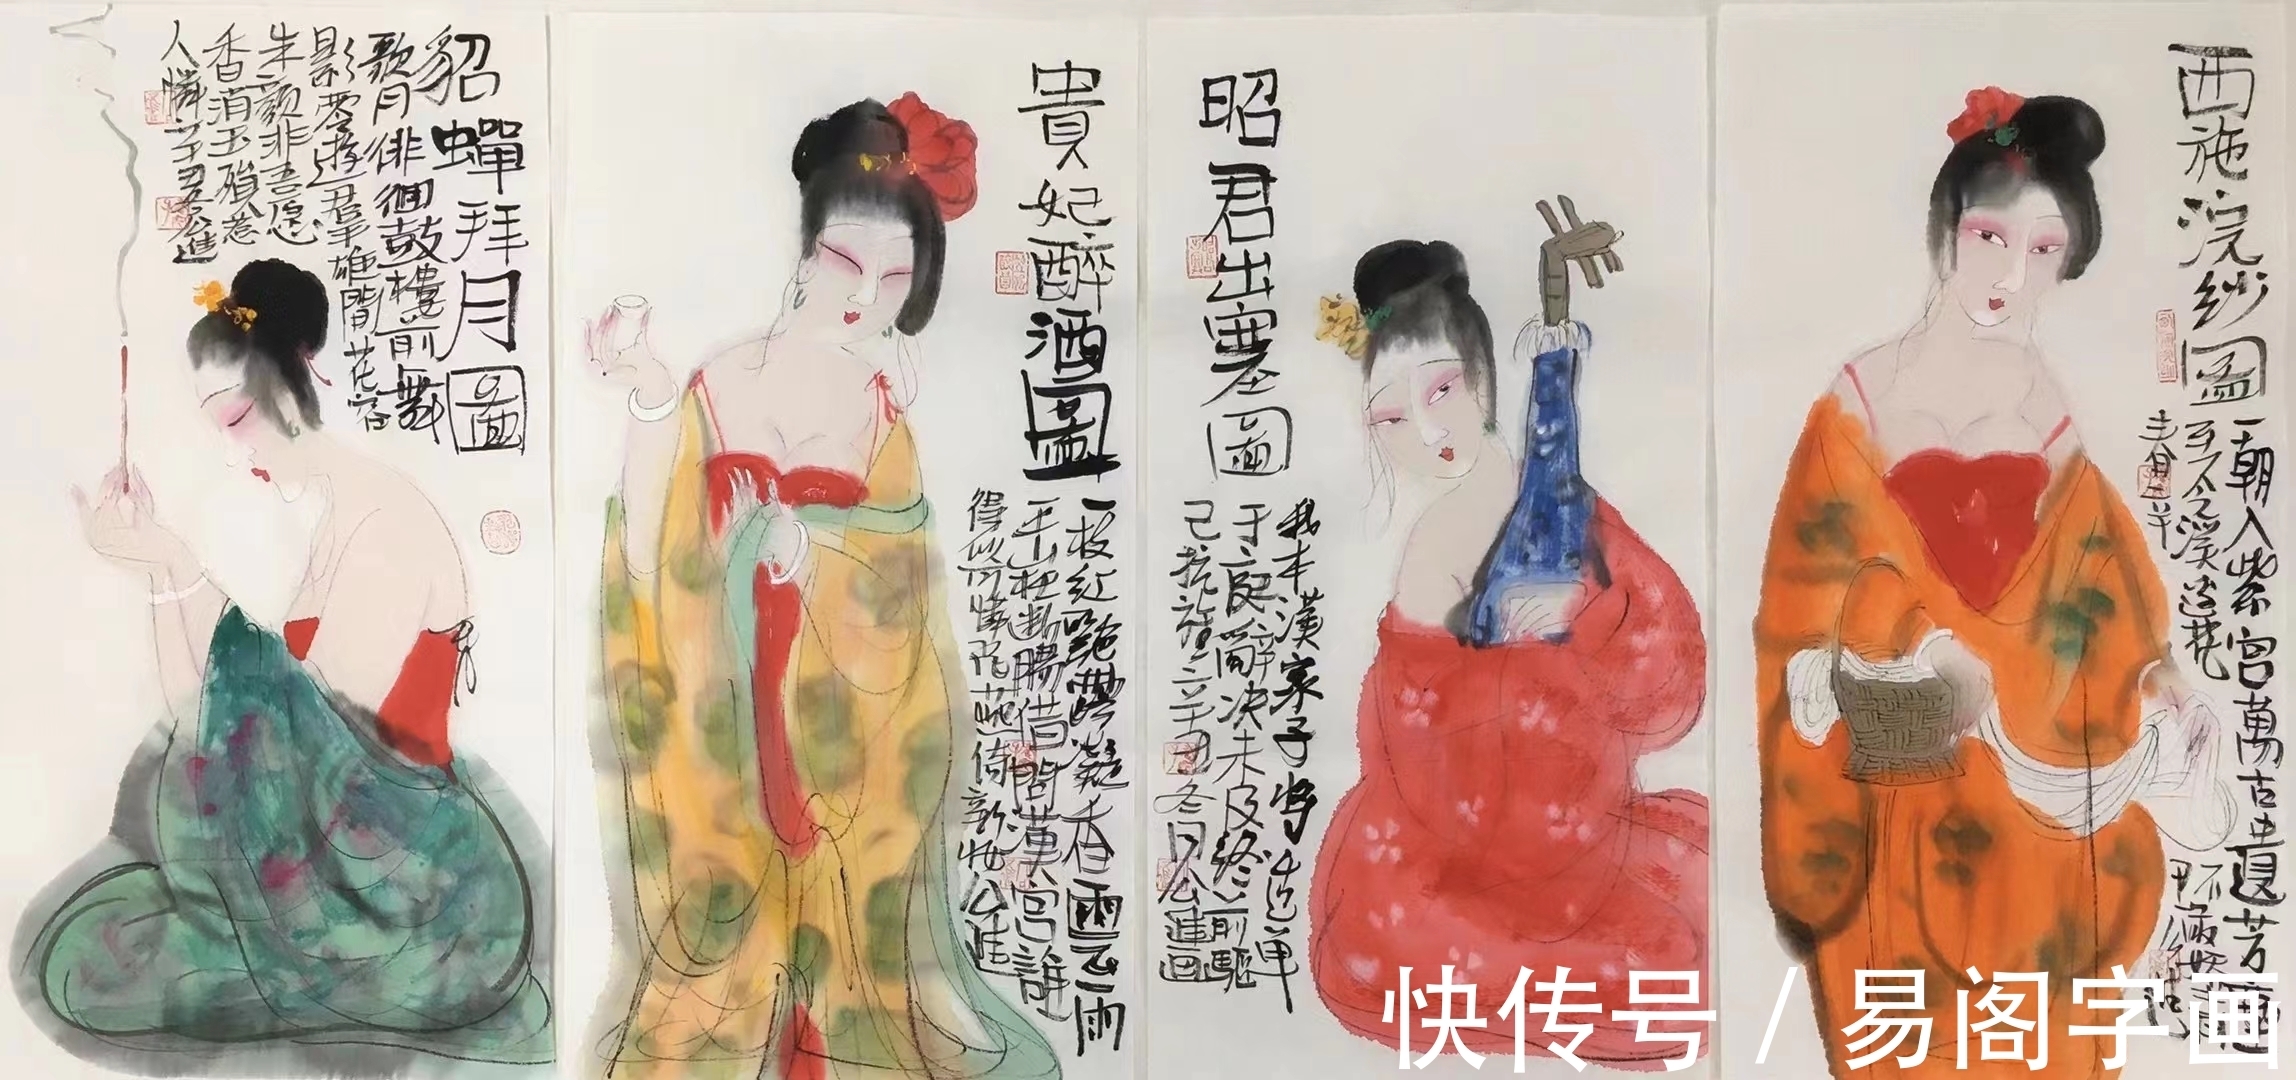 貂蟬拜月圖
歌月徘徊鼓樓前舞
影零遊羣雄間花容
朱顏非吾愿
香消玉殞惹
人憐辛丑公進
貴妃醉酒圖
一枝紅艷露凝香雲雨
巫山枉斷腸借問漢宮誰
得似可憐飛燕倚新妝公進
昭君出塞圖
我本漢家子將適單
于庭辭決未及終前驅
已抗旌辛丑冬月公進画
西施浣紗圖
一朝入紫宮萬古遺芳塵
至今溪邊花
快传号 / 易阁字画